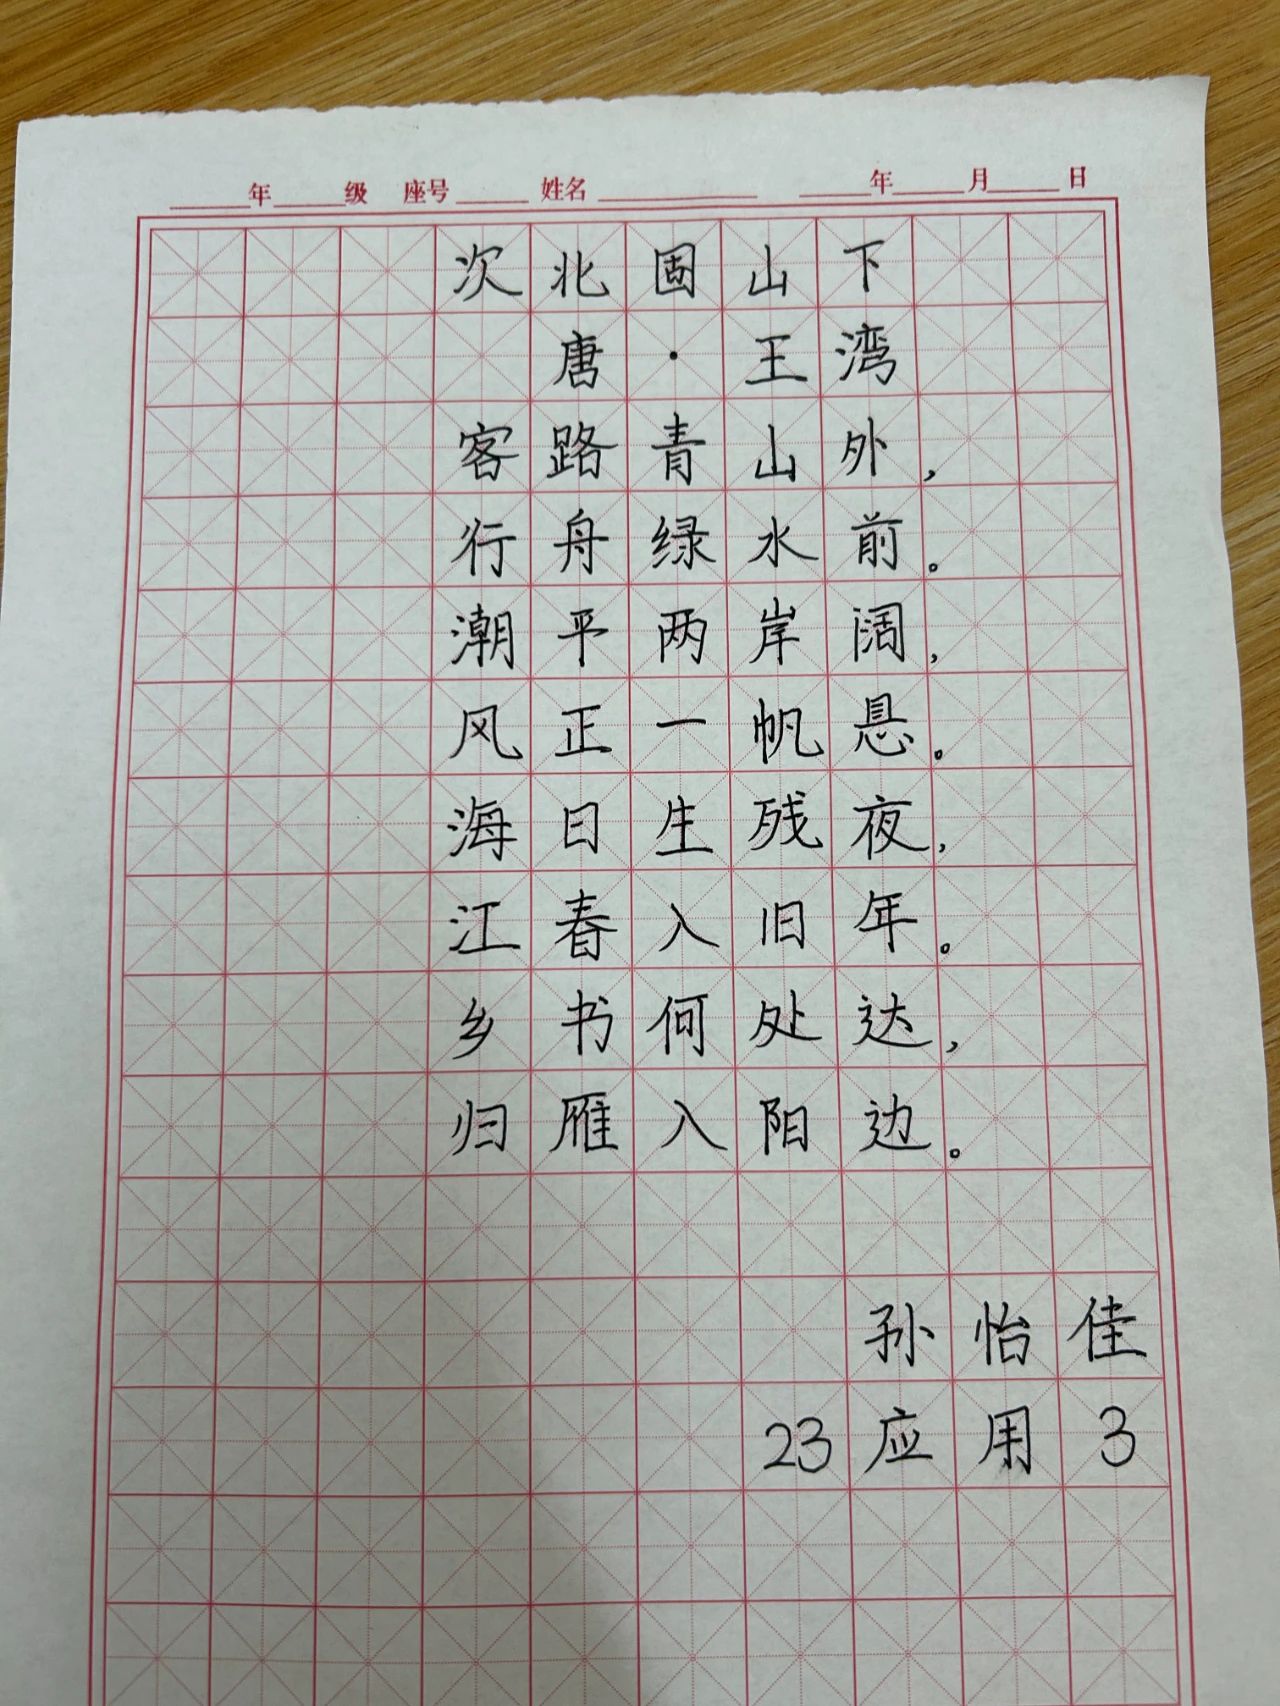 年 级 座号 姓名 年 月 日
次北固山下
唐·王湾
客路青山外,
行舟绿水前。
潮平两岸阔,
风正一帆悬。
海日生残夜,
江春入旧年。
乡书何处达,
归雁入阳边。
孙怡佳
23应用3